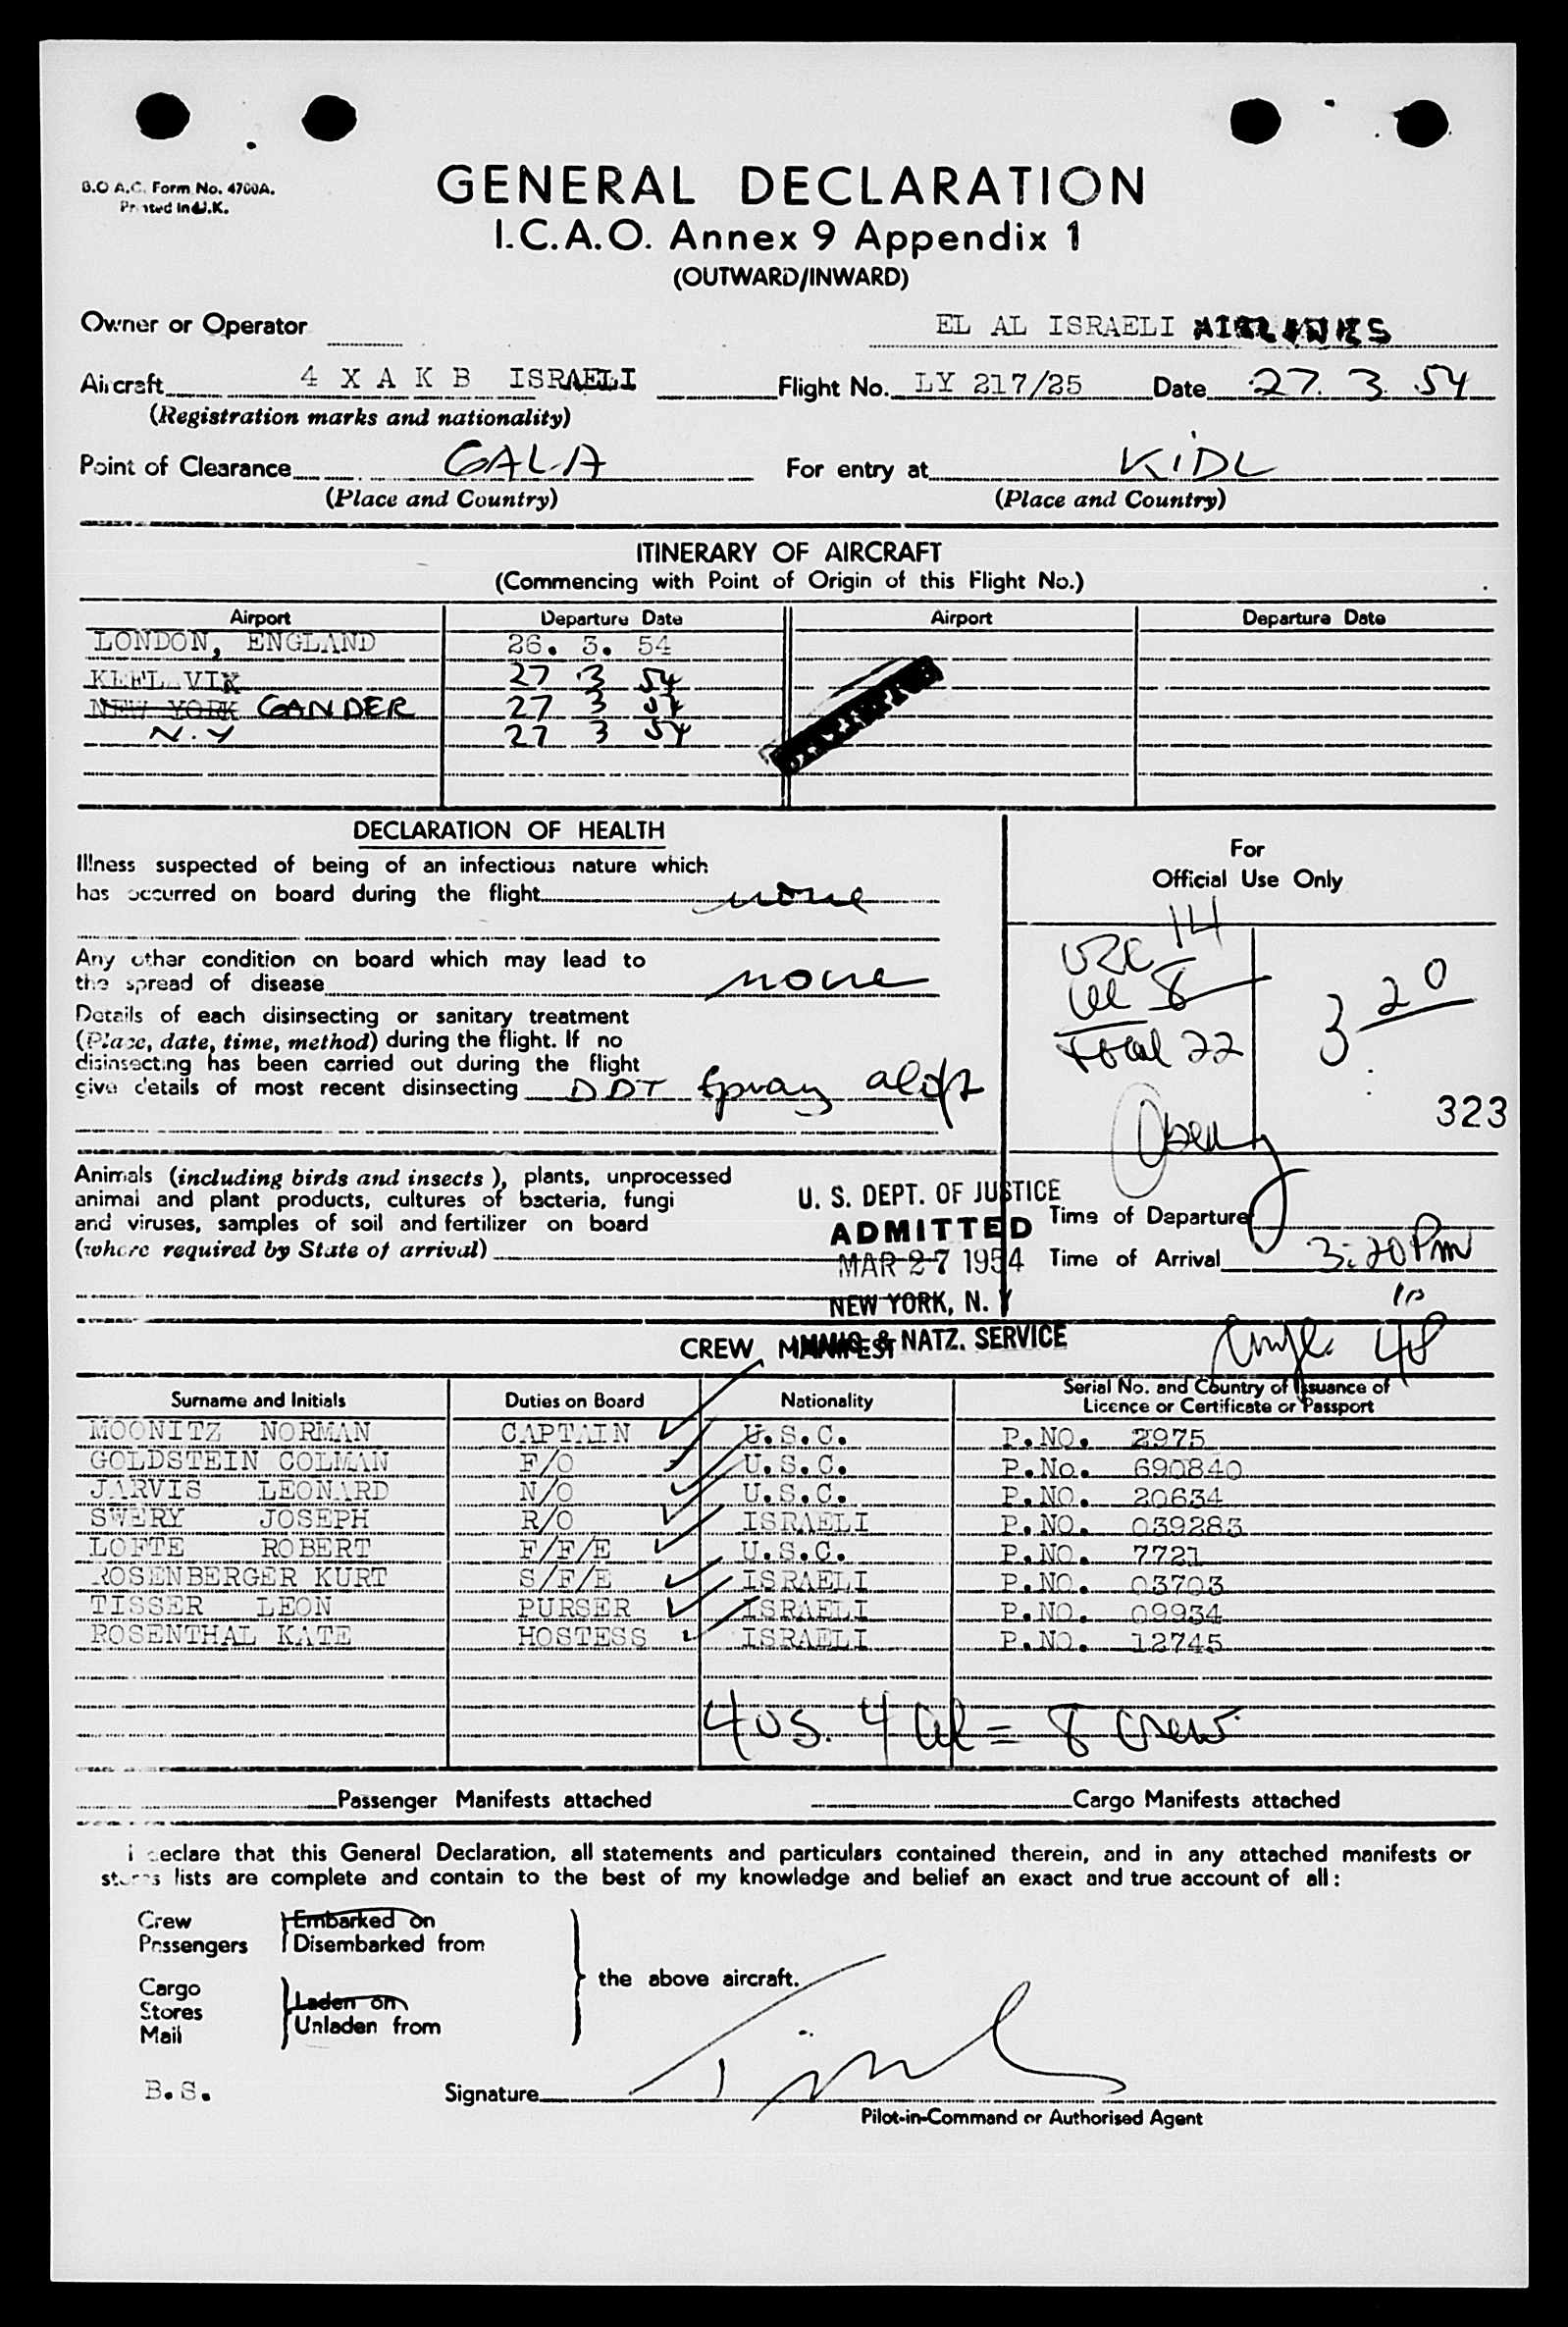 B.O.A.C. Form No. 4700A.
Printed in U.K.
GENERAL DECLARATION
I.C.A.O. Annex 9 Appendix 1
(OUTWARD/INWARD)
Owner or Operator EL AL ISRAELI AIRLINES
Aircraft 4 X A K B ISRAELI Flight No. LY 217/25 Date 27. 3. 54
(Registration marks and nationality)
Point of Clearance GALA For entry at KIDL
(Place and Country) (Place and Country)
ITINERARY OF AIRCRAFT
(Commencing with Point of Origin of this Flight No.)
Airport Departure Date Airport Departure Date
LONDON, ENGLAND 26. 3. 54
KEFLAVIK 27 3 54
NEW YORK GANDER 27 3 54
N.Y 27 3 54
DECLARATION OF HEALTH
Illness suspected of being of an infectious nature which
has occurred on board during the flight none
Any other condition on board which may lead to
the spread of disease none
Details of each disinsecting or sanitary treatment
(Place, date, time, method) during the flight. If no
disinsecting has been carried out during the flight
give details of most recent disinsecting DDT Spray aloft
For
Official Use Only
USC 14
al 8
Total 22
3 20
323
Animals (including birds and insects), plants, unprocessed
animal and plant products, cultures of bacteria, fungi
and viruses, samples of soil and fertilizer on board
(where required by State of arrival)
U. S. DEPT. OF JUSTICE
ADMITTED
MAR 27 1954
NEW YORK, N. Y
IMMIG. & NATZ. SERVICE
Time of Departure
Time of Arrival 3:20 Pm
CREW MANIFEST
Surname and Initials Duties on Board Nationality Serial No. and Country of Issuance of
Licence or Certificate or Passport
MOONITZ NORMAN CAPTAIN U.S.C. P.NO. 2975
GOLDSTEIN COLMAN F/O U.S.C. P.No. 690840
JARVIS LEONARD N/O U.S.C. P.NO. 20634
SWERY JOSEPH R/O ISRAELI P.NO. 039283
LOFTE ROBERT F/F/E U.S.C. P.NO. 7721
ROSENBERGER KURT S/F/E ISRAELI P.NO. 03703
TISSER LEON PURSER ISRAELI P.NO. 09934
ROSENTHAL KATE HOSTESS ISRAELI P.NO. 12745
4 US. 4 al = 8 Crew
Passenger Manifests attached Cargo Manifests attached
I declare that this General Declaration, all statements and particulars contained therein, and in any attached manifests or
stores lists are complete and contain to the best of my knowledge and belief an exact and true account of all:
Crew Embarked on
Passengers Disembarked from
the above aircraft.
Cargo
Stores Laden on
Mail Unladen from
B.S. Signature
Pilot-in-Command or Authorised Agent